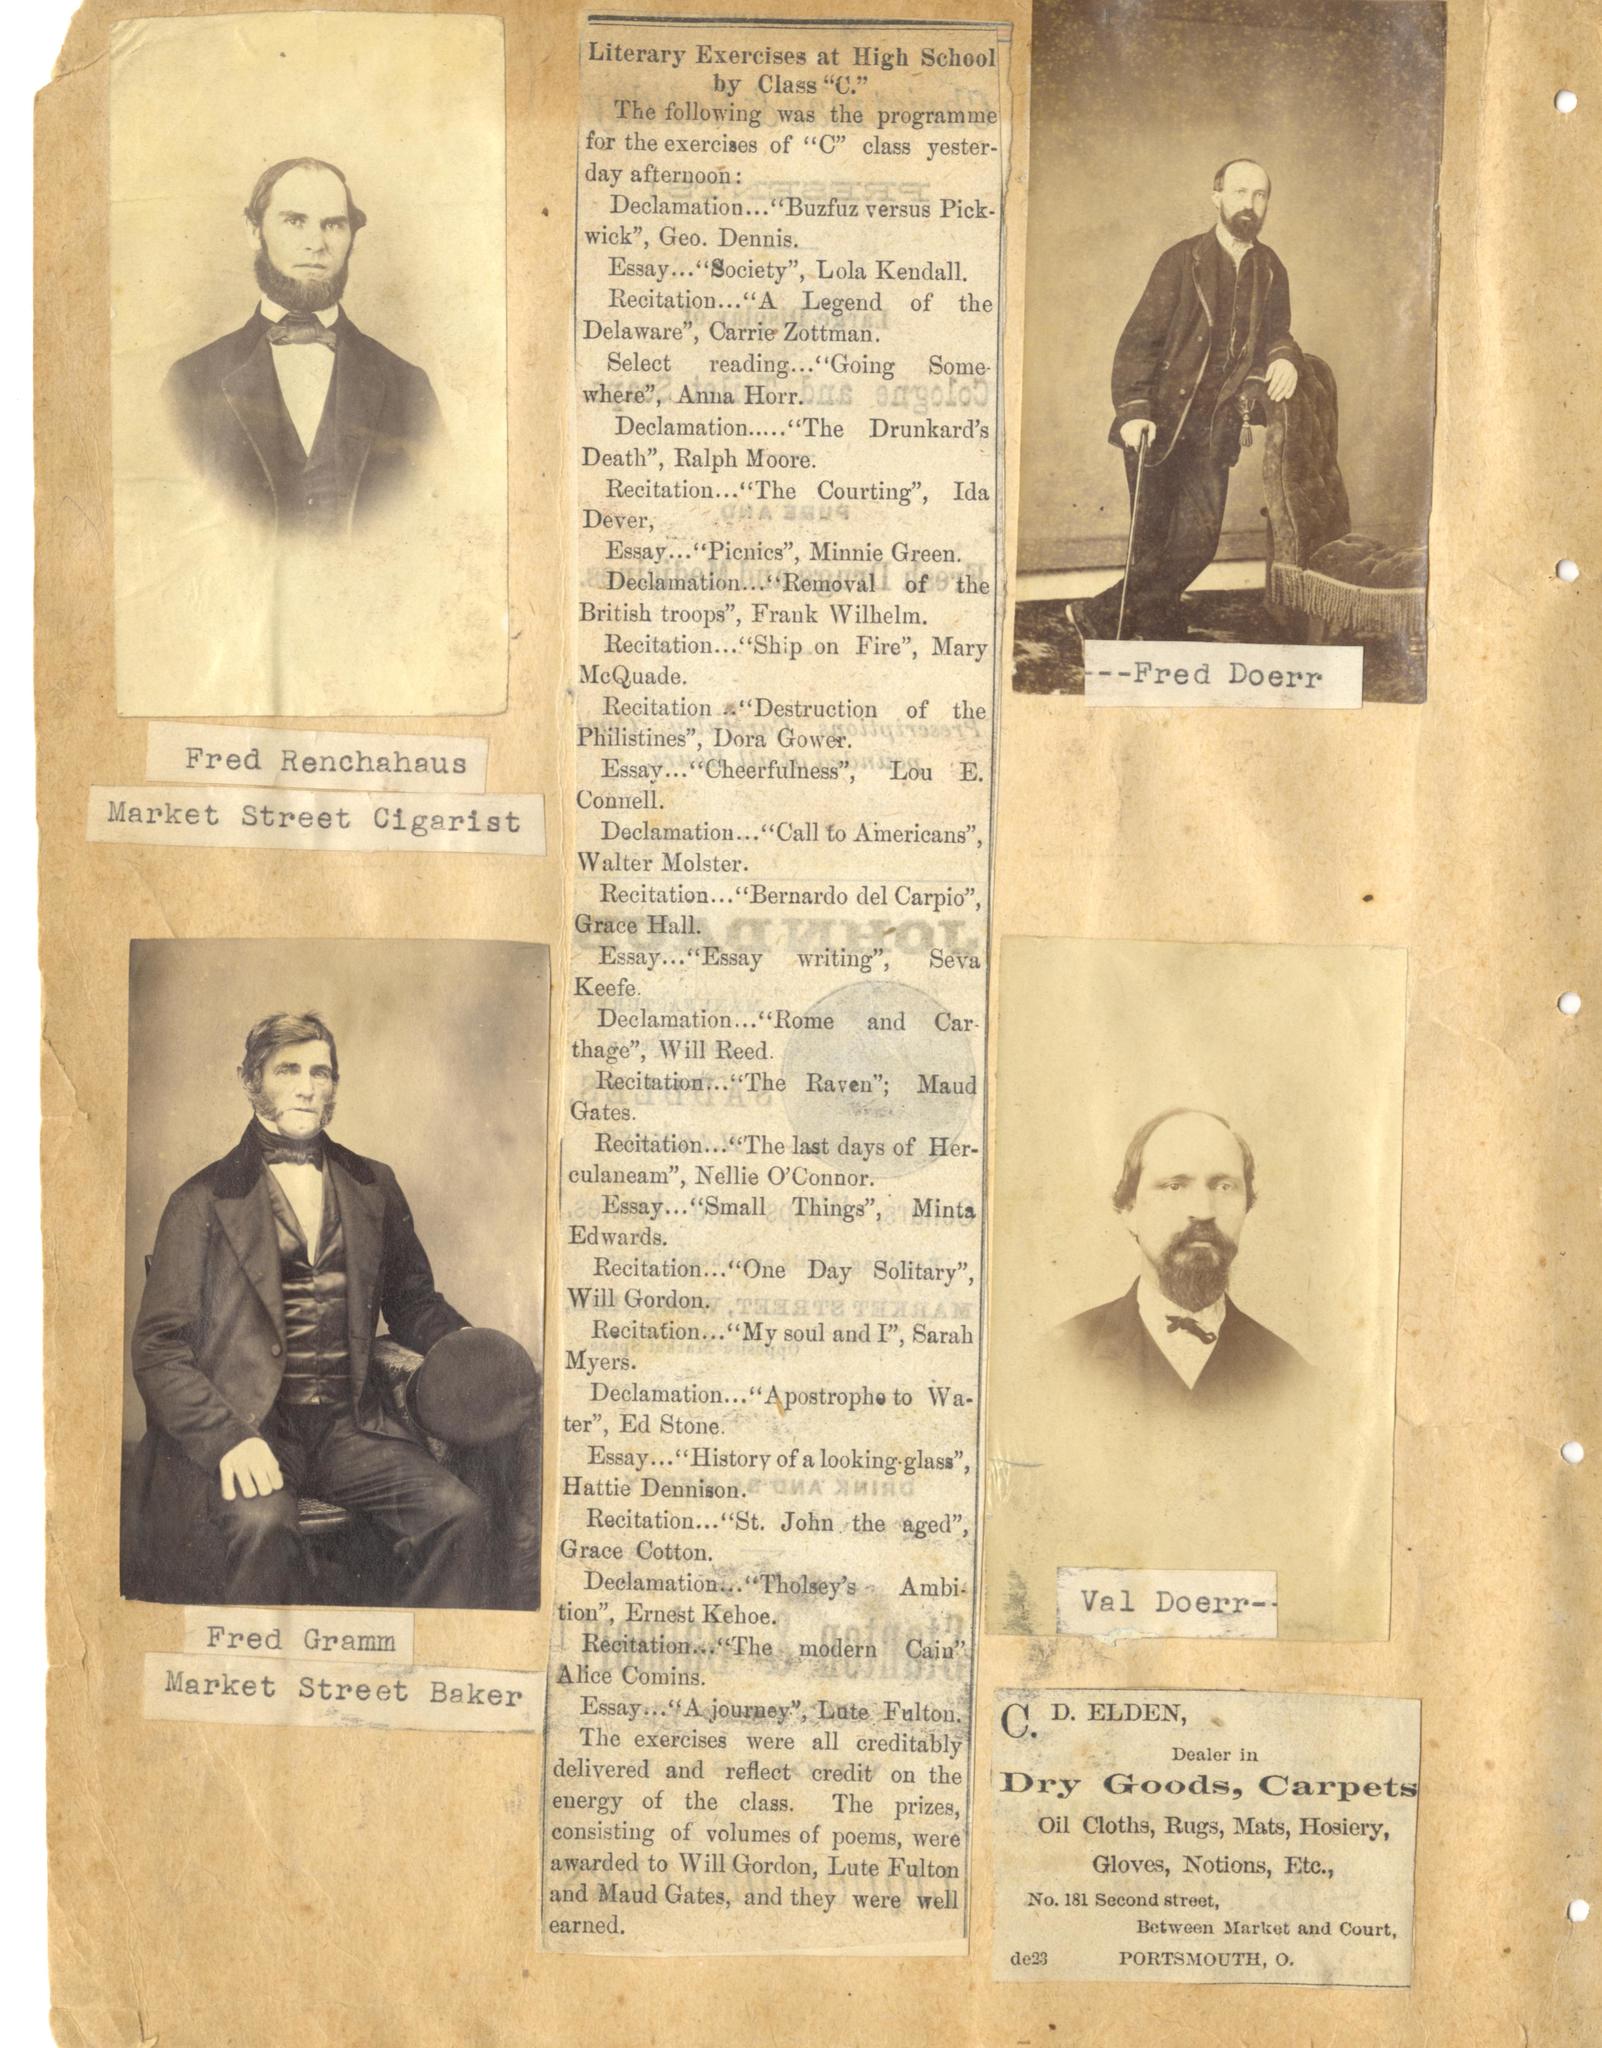 Literary Exercises at High School
by Class "C."
The following was the programme
for the exercises of "C" class yester-
day afternoon:
Declamation..."Buzfuz versus Pick-
wick", Geo. Dennis.
Essay..."Society", Lola Kendall.
Recitation..."A Legend of the
Delaware", Carrie Zottman.
Select reading..."Going Some-
where", Anna Horr.
Declamation....."The Drunkard's
Death", Ralph Moore.
Recitation..."The Courting", Ida
Dever,
Essay..."Picnics", Minnie Green.
Declamation..."Removal of the
British troops", Frank Wilhelm.
Recitation..."Ship on Fire", Mary
McQuade.
Recitation .."Destruction of the
Philistines", Dora Gower.
Essay..."Cheerfulness", Lou E.
Connell.
Declamation..."Call to Americans",
Walter Molster.
Recitation..."Bernardo del Carpio",
Grace Hall.
Essay..."Essay writing", Seva
Keefe.
Declamation..."Rome and Car-
thage", Will Reed.
Recitation..."The Raven"; Maud
Gates.
Recitation..."The last days of Her-
culaneam", Nellie O'Connor.
Essay..."Small Things", Minta
Edwards.
Recitation..."One Day Solitary",
Will Gordon.
Recitation..."My soul and I", Sarah
Myers.
Declamation..."Apostrophe to Wa-
ter", Ed Stone.
Essay..."History of a looking-glass",
Hattie Dennison.
Recitation..."St. John the aged",
Grace Cotton.
Declamation..."Tholsey's Ambi-
tion", Ernest Kehoe.
Recitation..."The modern Cain"
Alice Comins.
Essay..."A journey", Lute Fulton.
The exercises were all creditably
delivered and reflect credit on the
energy of the class. The prizes,
consisting of volumes of poems, were
awarded to Will Gordon, Lute Fulton
and Maud Gates, and they were well
earned.
Fred Renchahaus
Market Street Cigarist
Fred Gramm
Market Street Baker
---Fred Doerr
Val Doerr--
C. D. ELDEN,
Dealer in
Dry Goods, Carpets
Oil Cloths, Rugs, Mats, Hosiery,
Gloves, Notions, Etc.,
No. 181 Second street,
Between Market and Court,
de23 PORTSMOUTH, O.